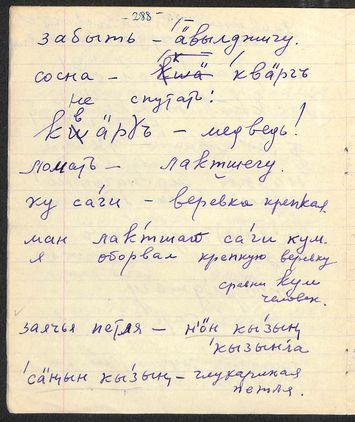 - 288 -
забыть – а̋вылджигу.
сосна – квӓргъ
не спутать:
квӓрɣъ – медведь!
ломать – лактшегу.
ку са́ги – веревка крепкая.
ман лакт́шат са́ги кум.
я оборвал крепкую веревку
сравни кум
человек.
заячья петля – н'ӧн кы́зың
кы́зынла
сӓңын кы́зың – глухариная
петля.